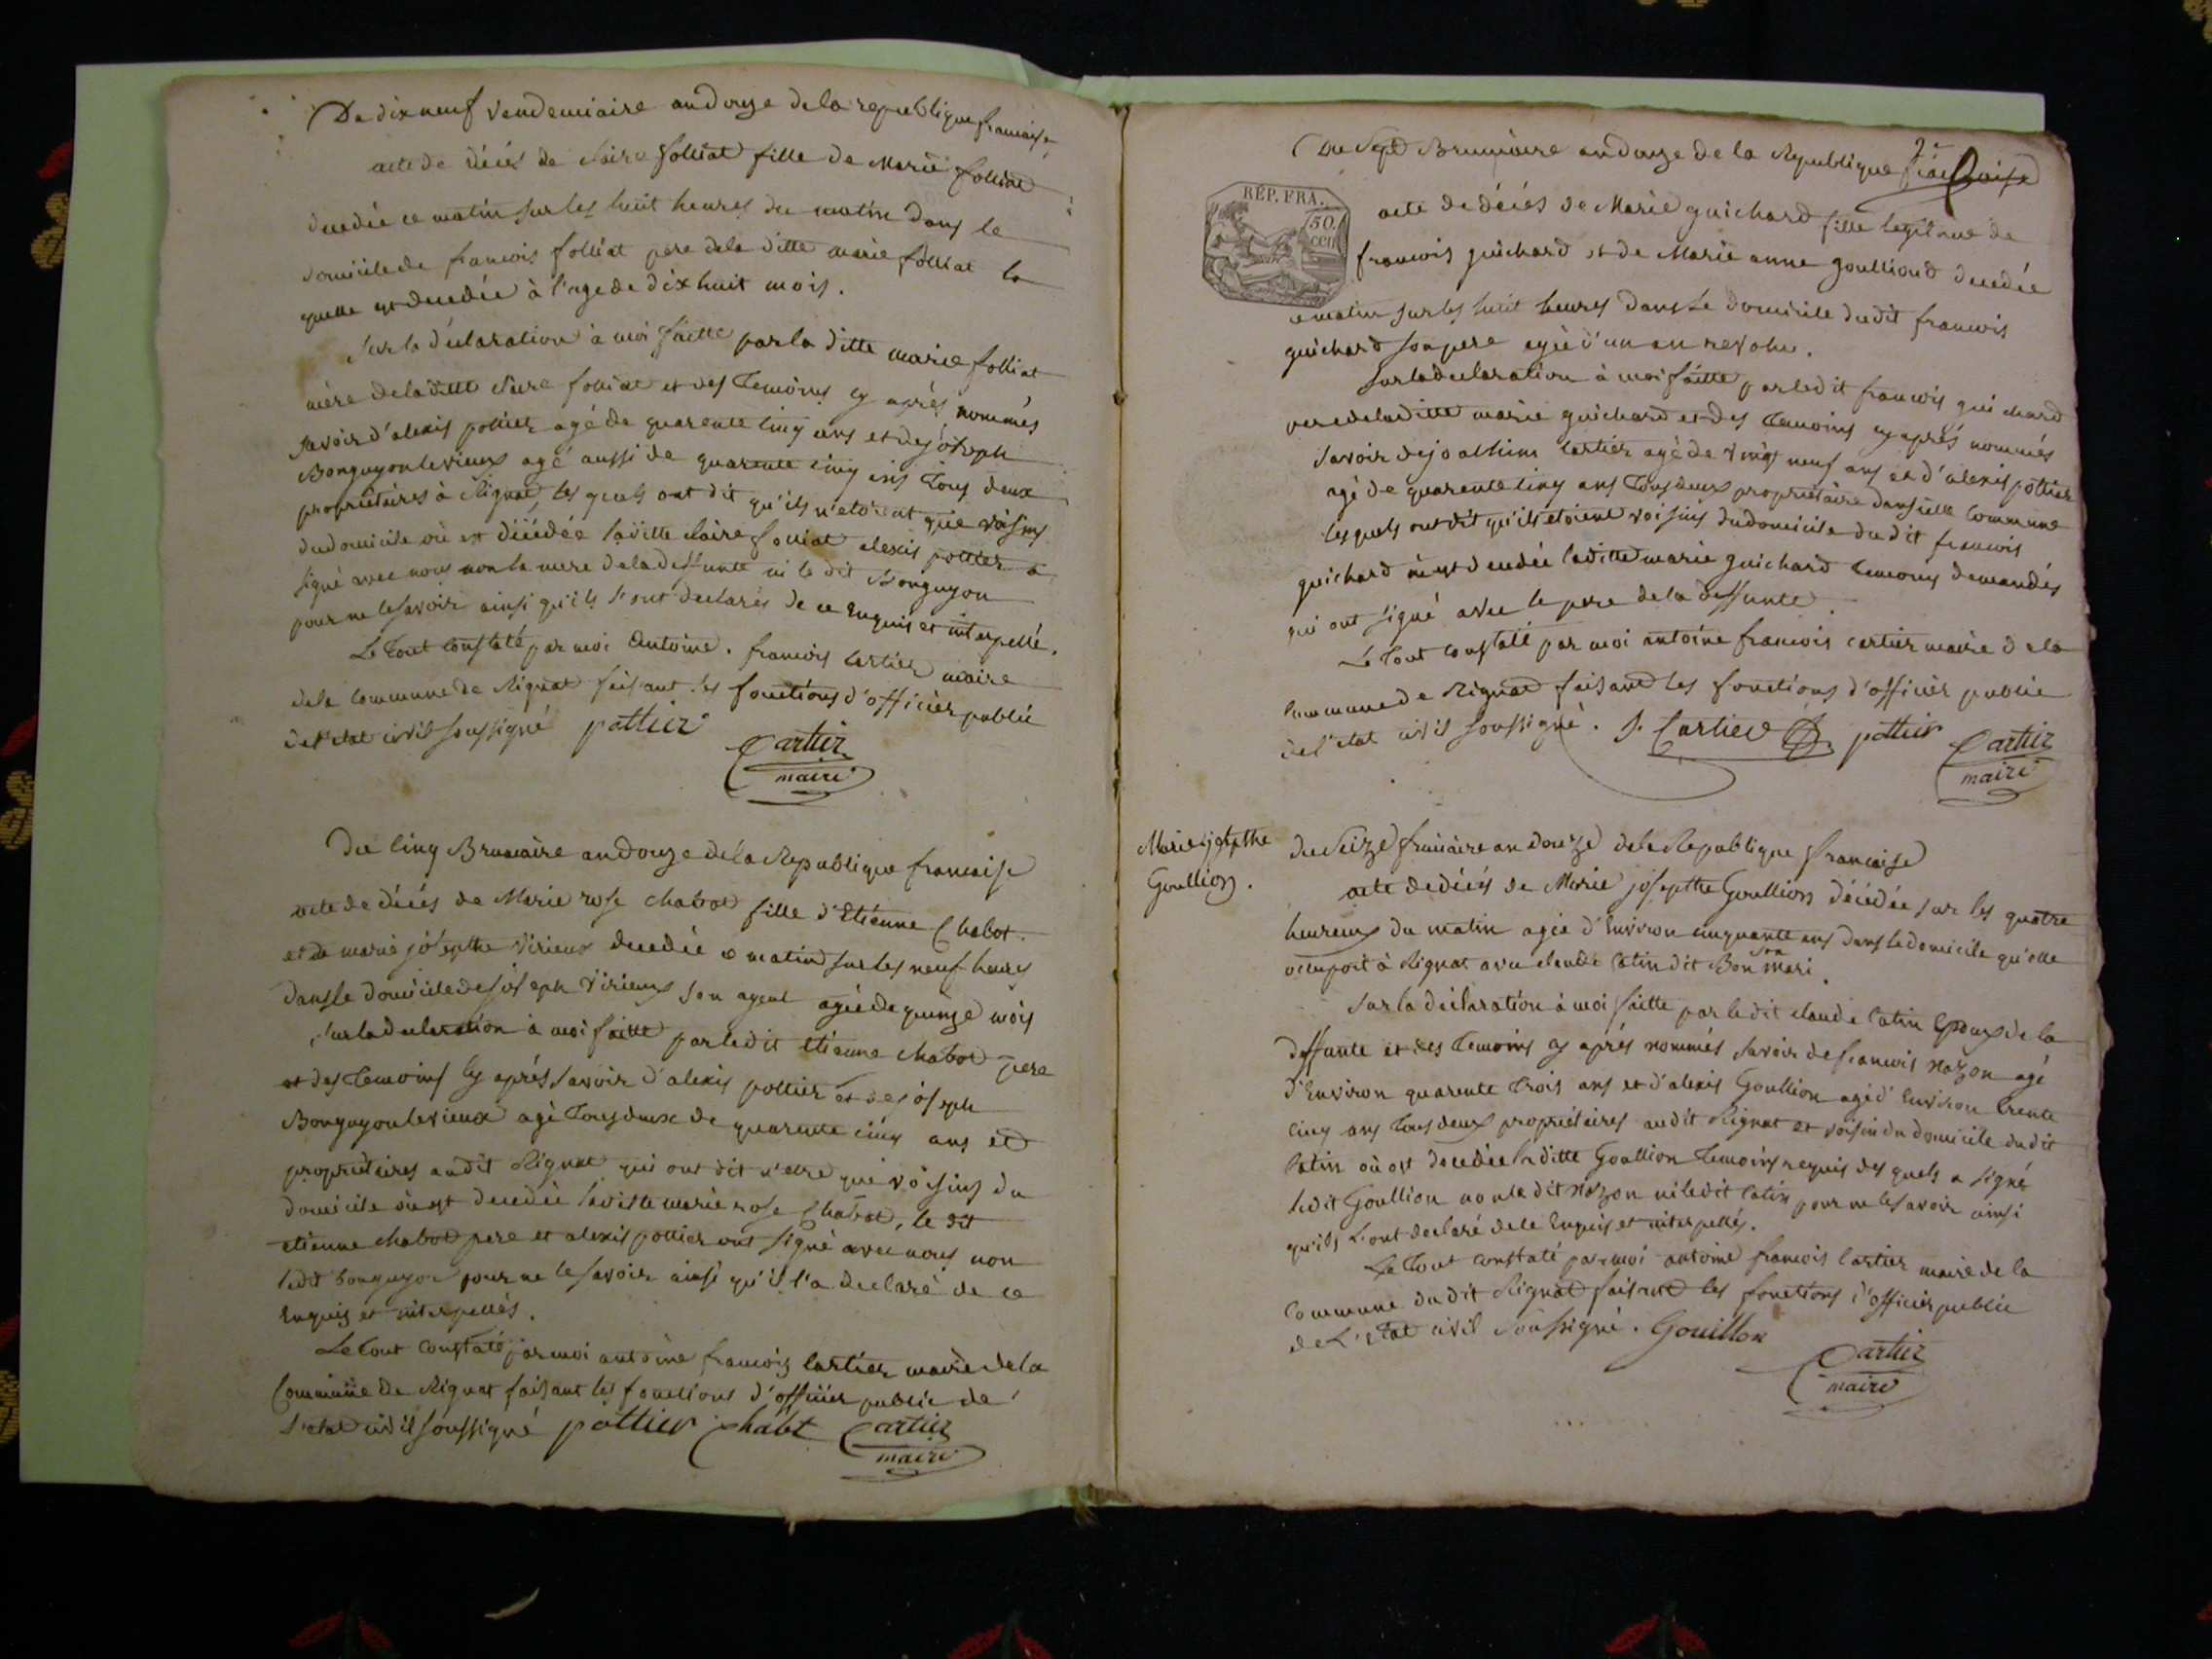 Du dix neuf Vendemiaire an douze de la republique francaise
acte de décés de claire folliat fille de Marie folliat
decedée ce matin sur les huit heures du matin dans le
domicile de francois folliat pere de la ditte marie folliat la
quelle est decedée à l'age de dix huit mois.
Sur la déclaration à moi faitte par la ditte marie folliat
mère de la ditte claire folliat et des temoins cy aprés nommés
savoir d'alexis pottier agé de quarente cinq ans et de joseph
Bonguyon le vieux agé aussi de quarente cinq ans tous deux
propriétaires à Rignat, les quels ont dit qu'ils n'etoient que voisins
du domicile où est décédée laditte claire folliat alexis pottier a
signé avec nous non la mere de la deffunte ni le dit Bonguyon
pour ne le savoir ainsi qu'ils l'ont declarés de ce enquis et interpellé.
Le tout constaté par moi antoine . francois cartier maire
de la commune de Rignat faisant les fonctions d'officier public
de l'etat civil soussigné pottier
Cartier
maire
Du cinq Brumaire an douze de la Republique francaise
acte de décés de Marie rose chabot fille d'Etienne Chabot
et de marie joséphe Virieux decedée ce matin sur les neuf heures
dans le domicile de joseph Virieux son ayeul agée de quinze mois
sur la declaration à moi faitte par le dit etienne chabot pere
et des temoins cy aprés savoir d'alexis pottier et de joseph
Bonguyon le vieux agé tous deux de quarente cinq ans et
propriétaires au dit Rignat qui ont dit n'etre que voisins du
domicile où est decedée laditte marie rose chabot, le dit
etienne chabot pere et alexis pottier ont signé avec nous non
ledit bonguyon pour ne le savoir ainsi qu'il l'a declaré de ce
enquis et interpellés.
Le tout constaté par moi antoine francois cartier maire de la
Commune de Rignat faisant les fonctions d'officier public de
l'etat civil soussigné pottier Chabt Cartier
maire
RÉP. FRA.
50.
cen
Du Sept Brumaire an douze de la Republique francaise
acte de décés de Marie guichard fille legitime de
francois guichard et de Marie anne goulliond decedée
ce matin sur les huit heures dans le domicile dudit francois
guichard son pere agée d'un an revolu.
sur la declaration à moi faitte par ledit francois guichard
pere de laditte marie guichard et des temoins cy aprés nommés
savoir de joathim cartier agé de vingt neuf ans et d'alexis pottier
agé de quarente cinq ans tous deux propriétaire dans cette commune
les quels ont dit qu'ils etoient voisins du domicile du dit francois
guichard où est decedée laditte marie guichard temoins demandés
qui ont signé avec le pere de la deffunte.
Le tout constaté par moi antoine francois cartier maire de la
commune de Rignat faisant les fonctions d'officier public
de l'etat civil soussigné. J. Cartier pottier Cartier
maire
Marie josephe
Goullion.
du Seize frimaire an douze de la Republique francaise
acte de décés de Marie josephte Goullion décédée sur les quatre
heures du matin agée d'Environ cinquante ans dans le domicile qu'elle
occupoit à Rignat avec claude catin dit Bon son mari.
sur la déclaration à moi faitte par le dit claude catin Epoux de la
deffunte et des temoins cy aprés nommés savoir de francois nazon agé
d'Environ quarente trois ans et d'alexis Goullion agé d'Environ trente
cinq ans tous deux propriétaires au dit Rignat et voisin du domicile du dit
catin où est decedée laditte Goullion temoins requis des quels a signé
ledit Goullion non le dit nazon ni ledit catin pour ne le savoir ainsi
qu'ils l'ont declaré de ce Enquis et interpellés.
Le tout constaté par moi antoine francois cartier maire de la
Commune du dit Rignat faisant les fonctions d'officier public
de L'etat civil soussigné. Gouillon
Cartier
maire